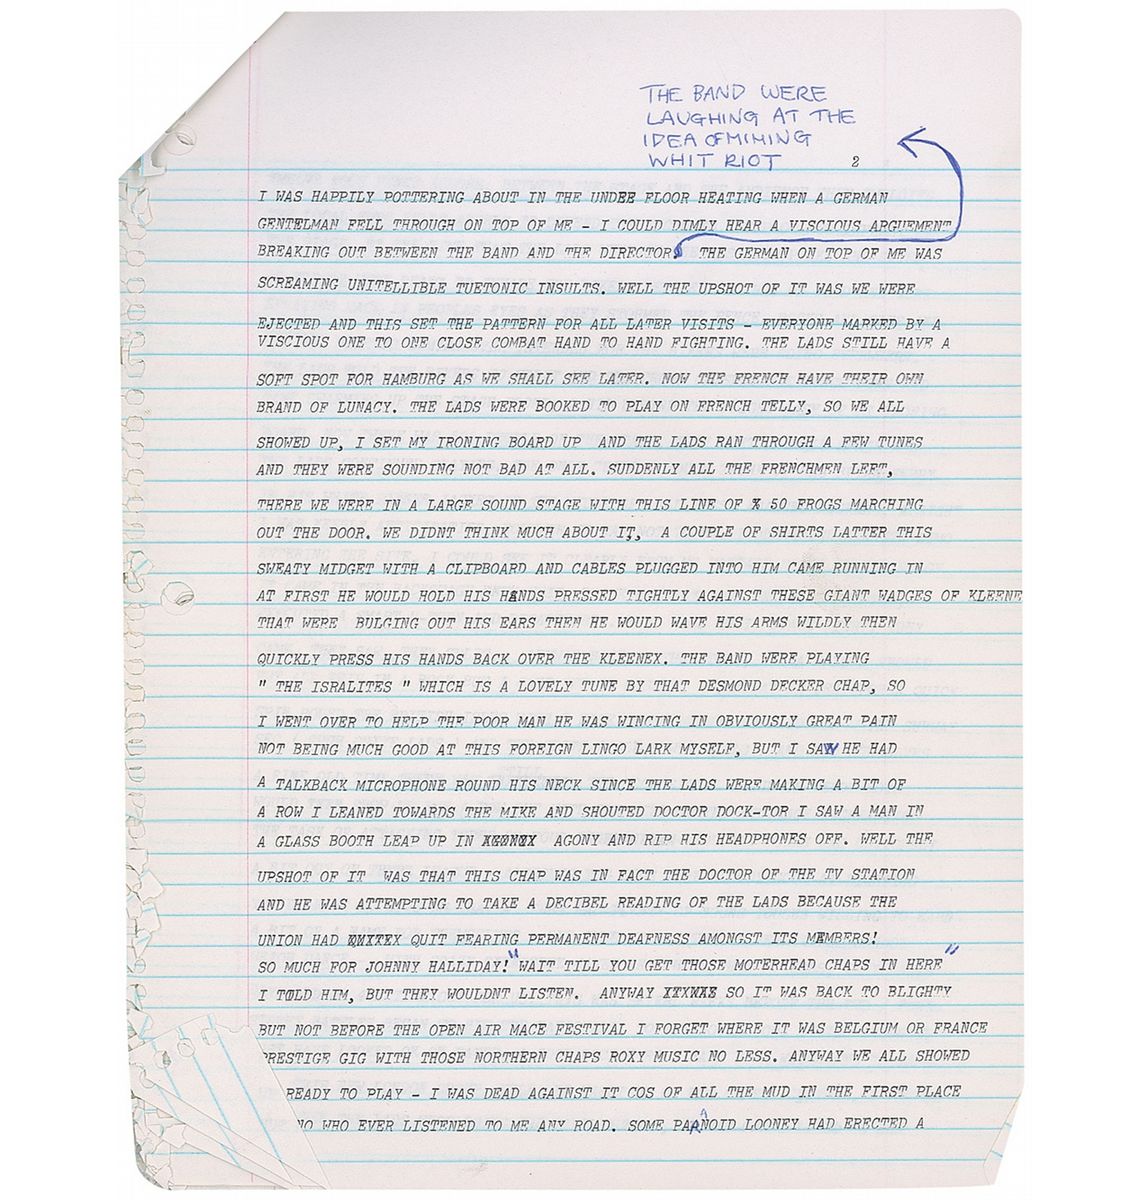 THE BAND WERE
LAUGHING AT THE
IDEA OF MIMING
WHIT RIOT
2
I WAS HAPPILY POTTERING ABOUT IN THE UNDEE FLOOR HEATING WHEN A GERMAN
GENTELMAN FELL THROUGH ON TOP OF ME - I COULD DIMLY HEAR A VISCIOUS ARGUEMENT
BREAKING OUT BETWEEN THE BAND AND THE DIRECTOR, THE GERMAN ON TOP OF ME WAS
SCREAMING UNITELLIBLE TUETONIC INSULTS. WELL THE UPSHOT OF IT WAS WE WERE
EJECTED AND THIS SET THE PATTERN FOR ALL LATER VISITS - EVERYONE MARKED BY A
VISCIOUS ONE TO ONE CLOSE COMBAT HAND TO HAND FIGHTING. THE LADS STILL HAVE A
SOFT SPOT FOR HAMBURG AS WE SHALL SEE LATER. NOW THE FRENCH HAVE THEIR OWN
BRAND OF LUNACY. THE LADS WERE BOOKED TO PLAY ON FRENCH TELLY, SO WE ALL
SHOWED UP, I SET MY IRONING BOARD UP AND THE LADS RAN THROUGH A FEW TUNES
AND THEY WERE SOUNDING NOT BAD AT ALL. SUDDENLY ALL THE FRENCHMEN LEFT,
THERE WE WERE IN A LARGE SOUND STAGE WITH THIS LINE OF % 50 FROGS MARCHING
OUT THE DOOR. WE DIDNT THINK MUCH ABOUT IT, A COUPLE OF SHIRTS LATTER THIS
SWEATY MIDGET WITH A CLIPBOARD AND CABLES PLUGGED INTO HIM CAME RUNNING IN
AT FIRST HE WOULD HOLD HIS HANDS PRESSED TIGHTLY AGAINST THESE GIANT WADGES OF KLEENE
THAT WERE BULGING OUT HIS EARS THEN HE WOULD WAVE HIS ARMS WILDLY THEN
QUICKLY PRESS HIS HANDS BACK OVER THE KLEENEX. THE BAND WERE PLAYING
" THE ISRALITES " WHICH IS A LOVELY TUNE BY THAT DESMOND DECKER CHAP, SO
I WENT OVER TO HELP THE POOR MAN HE WAS WINCING IN OBVIOUSLY GREAT PAIN
NOT BEING MUCH GOOD AT THIS FOREIGN LINGO LARK MYSELF, BUT I SAW HE HAD
A TALKBACK MICROPHONE ROUND HIS NECK SINCE THE LADS WERE MAKING A BIT OF
A ROW I LEANED TOWARDS THE MIKE AND SHOUTED DOCTOR DOCK-TOR I SAW A MAN IN
A GLASS BOOTH LEAP UP IN AGONY AND RIP HIS HEADPHONES OFF. WELL THE
UPSHOT OF IT WAS THAT THIS CHAP WAS IN FACT THE DOCTOR OF THE TV STATION
AND HE WAS ATTEMPTING TO TAKE A DECIBEL READING OF THE LADS BECAUSE THE
UNION HAD QUIT FEARING PERMANENT DEAFNESS AMONGST ITS MEMBERS!
SO MUCH FOR JOHNNY HALLIDAY! "WAIT TILL YOU GET THOSE MOTERHEAD CHAPS IN HERE"
I TOLD HIM, BUT THEY WOULDNT LISTEN. ANYWAY SO IT WAS BACK TO BLIGHTY
BUT NOT BEFORE THE OPEN AIR MACE FESTIVAL I FORGET WHERE IT WAS BELGIUM OR FRANCE
PRESTIGE GIG WITH THOSE NORTHERN CHAPS ROXY MUSIC NO LESS. ANYWAY WE ALL SHOWED
READY TO PLAY - I WAS DEAD AGAINST IT COS OF ALL THE MUD IN THE FIRST PLACE
NO WHO EVER LISTENED TO ME ANY ROAD. SOME PARANOID LOONEY HAD ERECTED A